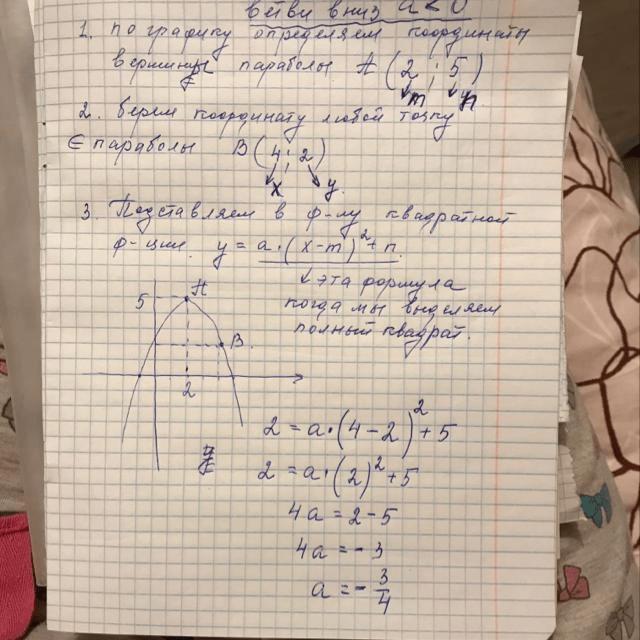 ветви вниз a<0
1. по графику определяем координаты
вершины параболы A (2 ; 5)
m n
2. берем координату любой точки
∈ параболы B (4 ; 2)
x y.
3. Подставляем в ф-лу квадратной
ф-ции. y = a·(x-m)²+n.
эта формула
когда мы выделяем
полный квадрат.
A
5
B
2
2 = a·(4-2)²+5
2 = a·(2)²+5
4a = 2-5
4a = -3
a = -3/4